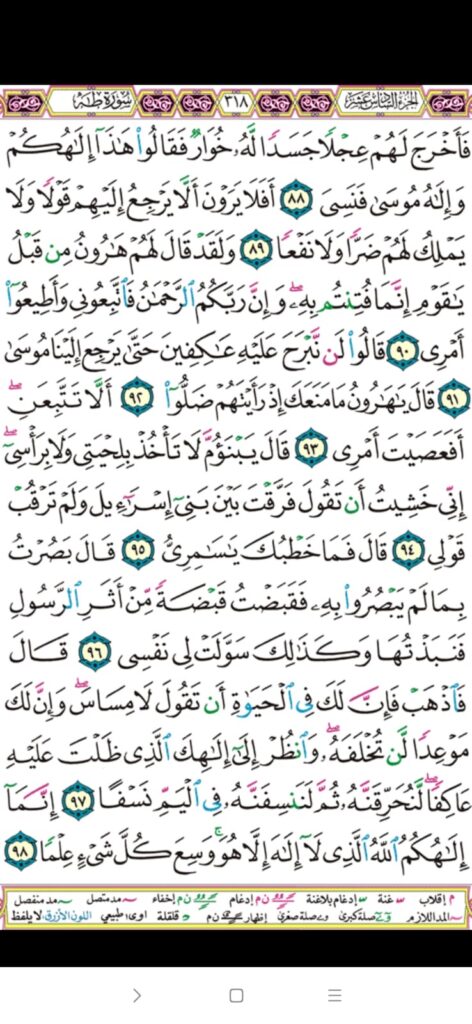 الجزء السادس عشر ٣١٨ سورة طه
فَأَخْرَجَ لَهُمْ عِجْلًا جَسَدًا لَّهُۥ خُوَارٌ فَقَالُوا۟ هَـٰذَآ إِلَـٰهُكُمْ
وَإِلَـٰهُ مُوسَىٰ فَنَسِىَ ٨٨ أَفَلَا يَرَوْنَ أَلَّا يَرْجِعُ إِلَيْهِمْ قَوْلًا وَلَا
يَمْلِكُ لَهُمْ ضَرًّا وَلَا نَفْعًا ٨٩ وَلَقَدْ قَالَ لَهُمْ هَـٰرُونُ مِن قَبْلُ
يَـٰقَوْمِ إِنَّمَا فُتِنتُم بِهِۦ ۖ وَإِنَّ رَبَّكُمُ ٱلرَّحْمَـٰنُ فَٱتَّبِعُونِى وَأَطِيعُوٓا۟
أَمْرِى ٩٠ قَالُوا۟ لَن نَّبْرَحَ عَلَيْهِ عَـٰكِفِينَ حَتَّىٰ يَرْجِعَ إِلَيْنَا مُوسَىٰ
٩١ قَالَ يَـٰهَـٰرُونُ مَا مَنَعَكَ إِذْ رَأَيْتَهُمْ ضَلُّوٓا۟ ٩٢ أَلَّا تَتَّبِعَنِ ۖ
أَفَعَصَيْتَ أَمْرِى ٩٣ قَالَ يَبْنَؤُمَّ لَا تَأْخُذْ بِلِحْيَتِى وَلَا بِرَأْسِىٓ ۖ
إِنِّى خَشِيتُ أَن تَقُولَ فَرَّقْتَ بَيْنَ بَنِىٓ إِسْرَٰٓءِيلَ وَلَمْ تَرْقُبْ
قَوْلِى ٩٤ قَالَ فَمَا خَطْبُكَ يَـٰسَـٰمِرِىُّ ٩٥ قَالَ بَصُرْتُ
بِمَا لَمْ يَبْصُرُوا۟ بِهِۦ فَقَبَضْتُ قَبْضَةً مِّنْ أَثَرِ ٱلرَّسُولِ
فَنَبَذْتُهَا وَكَذَٰلِكَ سَوَّلَتْ لِى نَفْسِى ٩٦ قَالَ
فَٱذْهَبْ فَإِنَّ لَكَ فِى ٱلْحَيَوٰةِ أَن تَقُولَ لَا مِسَاسَ ۖ وَإِنَّ لَكَ
مَوْعِدًا لَّن تُخْلَفَهُۥ ۖ وَٱنظُرْ إِلَىٰٓ إِلَـٰهِكَ ٱلَّذِى ظَلْتَ عَلَيْهِ
عَاكِفًا ۖ لَّنُحَرِّقَنَّهُۥ ثُمَّ لَنَنسِفَنَّهُۥ فِى ٱلْيَمِّ نَسْفًا ٩٧ إِنَّمَآ
إِلَـٰهُكُمُ ٱللَّهُ ٱلَّذِى لَآ إِلَـٰهَ إِلَّا هُوَ ۚ وَسِعَ كُلَّ شَىْءٍ عِلْمًا ٩٨
م إقلاب س غنة س إدغام بلاغنة ن م إدغام ن م إخفاء مد متصل مد منفصل
المد اللازم صلة كبرى صلة صغرى إظهار ن م قلقلة اوى: طبيعي اللون الأزرق: لا يلفظ